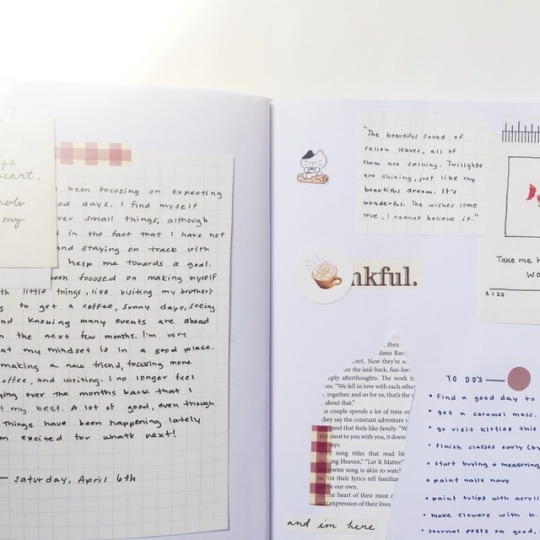 heart.
my
been focusing on expecting
days. I find myself
over small things, although
in the fact that I have not
and staying on track with
help me towards a goal.
been focused on making myself
little things, like visiting my brother's
to get a coffee, sunny days, seeing
and knowing many events are ahead
the next few months. I'm very
that my mindset is in a good place.
making a new friend, focusing more
coffee, and writing. I no longer feel
over the months back that I
my best. A lot of good, even though
things have been happening lately
excited for what's next!
— Saturday, April 6th
"The beautiful sound of
fallen leaves, all of
them are spilling. Twilights
are shining, just like my
beautiful dream. It's
wonderful. The wishes come
true, I cannot believe it."
nkful.
Take me
WO
then
dano Ra
days. Now they're
for the laid-back, fun-lov
ply afterthoughts. The work
"We fell in love with each other
together, and so for us, that's the
about that."
couple spends a lot of time
they say the constant adventure
and that feels like family. "W
most to you with you, it doesn
says.
song titles that read like
Heaven," "Let It Matter"
swim song is akin to wadi
their lyrics tell familiar
the heart of their most
expression of their lives
and im here
TO DO'S
• find a good day to
• get a caramel macc.
• go visit kitties this
• finish classes early (by
• start buying a measuring
• paint nails navy
• paint tulips with acryli
• make flowers with K.
• journal posts on good,